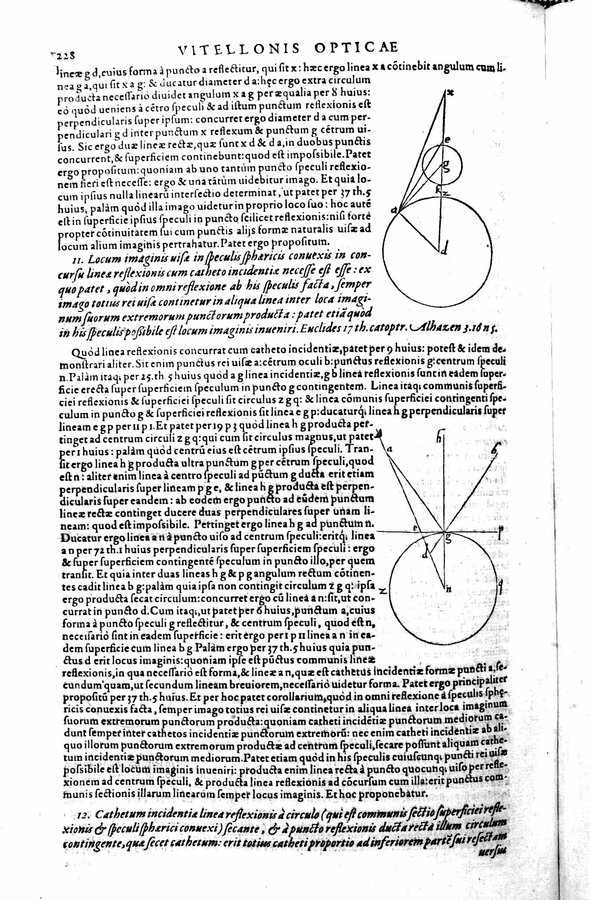 228
VITELLONIS OPTICAE
lineæ g d, cuius forma à puncto a reflectitur, qui sit x: hæc ergo linea x a cõtinebit angulum cum li-
nea g a, qui sit x a g: & ducatur diameter d a: hęc ergo extra circulum
producta necessariò diuidet angulum x a g per æqualia per 8 huius:
eò quòd ueniens à cẽtro speculi & ad istum punctum reflexionis est
perpendicularis super ipsum: concurret ergo diameter d a cum per-
pendiculari g d inter punctum x reflexum & punctum g cẽtrum ui-
sus. Sic ergo duæ lineæ rectæ, quæ sunt x d & d a, in duobus punctis
concurrent, & superficiem continebunt: quod est impossibile. Patet
ergo propositum: quoniam ab uno tantùm puncto speculi reflexio-
nem fieri est necesse: ergo & una tãtùm uidebitur imago. Et quia lo-
cum ipsius nulla linearũ intersectio determinat, ut patet per 37 th. 5
huius, palàm quòd illa imago uidetur in proprio loco suo: hoc autẽ
est in superficie ipsius speculi in puncto scilicet reflexionis: nisi fortè
propter cõtinuitatem sui cum punctis alijs formæ naturalis uisæ ad
locum alium imaginis pertrahatur. Patet ergo propositum.
11. Locum imaginis uisæ in speculis sphæricis conuexis in con-
cursu lineæ reflexionis cum catheto incidentiæ necesse est esse: ex
quo patet, quòd in omni reflexione ab his speculis facta, semper
imago totius rei uisæ continetur in aliqua linea inter loca imagi-
num suorum extremorum punctorum producta: patet etiã quòd
in his speculis possibile est locum imaginis inueniri. Euclides 17 th. catoptr. Alhazen 3. 16 n 5.
Quòd linea reflexionis concurrat cum catheto incidentiæ, patet per 9 huius: potest & idem de-
monstrari aliter. Sit enim punctus rei uisæ a: cẽtrum oculi b: punctus reflexionis g: centrum speculi
n. Palàm itaq; per 25. th. 5 huius quòd a g linea incidentiæ, g b linea reflexionis sunt in eadem super-
ficie erecta super superficiem speculum in puncto g contingentem. Linea itaq; communis superfi-
ciei reflexionis & superficiei speculi sit circulus z g q: & linea cõmunis superficiei contingenti spe-
culum in puncto g & superficiei reflexionis sit linea e g p: ducaturq; linea h g perpendicularis super
lineam e g p per 11 p 1. Et patet per 19 p 3 quòd linea h g producta per-
tinget ad centrum circuli z g q: qui cum sit circulus magnus, ut patet
per 1 huius: palàm quòd centrũ eius est cẽtrum ipsius speculi. Tran-
sit ergo linea h g producta ultra punctum g per cẽtrum speculi, quod
est n: aliter enim linea à centro speculi ad pũctum g ducta erit etiam
perpendicularis super lineam p g e, & linea h g producta est perpen-
dicularis super eandem: ab eodem ergo puncto ad eũdem punctum
lineæ rectæ continget ducere duas perpendiculares super unam li-
neam: quod est impossibile. Pertinget ergo linea h g ad punctum n.
Ducatur ergo linea a n à puncto uiso ad centrum speculi: eritq́; linea
a n per 72 th. 1 huius perpendicularis super superficiem speculi: ergo
& super superficiem contingentẽ speculum in puncto illo, per quem
transit. Et quia inter duas lineas h g & p g angulum rectum cõtinen-
tes cadit linea b g: palàm quia ipsa non contingit circulum z g q: ipsa
ergo producta secat circulum: concurret ergo cũ linea a n: sit, ut con-
currat in puncto d. Cum itaq;, ut patet per 6 huius, punctum a, cuius
forma à puncto speculi g reflectitur, & centrum speculi, quod est n,
necessariò sint in eadem superficie: erit ergo per 1 p 11 linea a n in ea-
dem superficie cum linea b g. Palàm ergo per 37 th. 5 huius quia pun-
ctus d erit locus imaginis: quoniam ipse est pũctus communis lineæ
reflexionis, in qua necessariò est forma, & lineæ a n, quæ est cathetus incidentiæ formæ puncti a, se-
cundum quam, ut secundum lineam breuiorem, necessariò uidetur forma. Patet ergo principaliter
propositũ per 37 th. 5 huius. Et per hoc patet corollarium, quòd in omni reflexione à speculis sphę-
ricis conuexis facta, semper imago totius rei uisæ continetur in aliqua linea inter loca imaginum
suorum extremorum punctorum producta: quoniam catheti incidẽtiæ punctorum mediorum ca-
dunt semper inter cathetos incidentiæ punctorum extremorũ: nec enim catheti incidentiæ ab ali-
quo illorum punctorum extremorum productæ ad centrum speculi, secare possunt aliquam cathe-
tum incidentiæ punctorum mediorum. Patet etiam quòd in his speculis cuiuscunq; puncti rei uisæ
possibile est locum imaginis inueniri: producta enim linea recta à puncto quocunq; uiso per refle-
xionem ad centrum speculi, & producta linea reflexionis ad cõcursum cum illa: erit punctus com-
munis sectionis illarum linearum semper locus imaginis. Et hoc proponebatur.
12. Cathetum incidentiæ linea reflexionis à circulo (qui est communis sectio superficiei refle-
xionis & speculi sphærici conuexi) secante, & à puncto reflexionis ducta recta illum circulum
contingente, quæ secet cathetum: erit totius catheti proportio ad inferiorem partẽ sui resectam
uersus
x
e
g
h
z
a
d
h
a
b
e
g
p
d
z
n
q